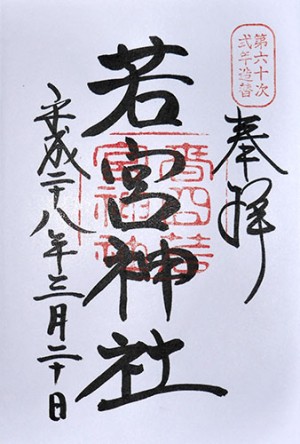 第六十次
式年造替
奉拝
若宮神社
平成二十八年三月二十日